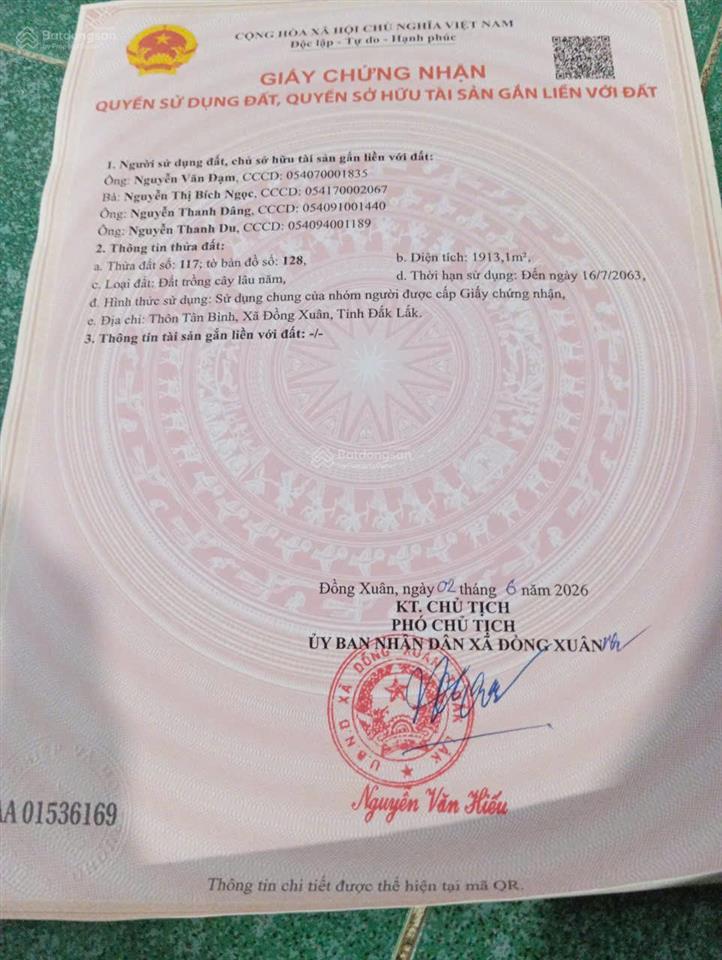 Batdongsan
by PropertyGuru
CỘNG HÒA XÃ HỘI CHỦ NGHĨA VIỆT NAM
Độc lập - Tự do - Hạnh phúc
GIẤY CHỨNG NHẬN
QUYỀN SỬ DỤNG ĐẤT, QUYỀN SỞ HỮU TÀI SẢN GẮN LIỀN VỚI ĐẤT
1. Người sử dụng đất, chủ sở hữu tài sản gắn liền với đất:
Ông: Nguyễn Văn Đạm, CCCD: 054070001835
Bà: Nguyễn Thị Bích Ngọc, CCCD: 054170002067
Ông: Nguyễn Thanh Dâng, CCCD: 054091001440
Ông: Nguyễn Thanh Du, CCCD: 054094001189
2. Thông tin thửa đất:
a. Thửa đất số: 117; tờ bản đồ số: 128, b. Diện tích: 1913,1m²,
c. Loại đất: Đất trồng cây lâu năm, d. Thời hạn sử dụng: Đến ngày 16/7/2063,
đ. Hình thức sử dụng: Sử dụng chung của nhóm người được cấp Giấy chứng nhận,
e. Địa chỉ: Thôn Tân Bình, Xã Đồng Xuân, Tỉnh Đắk Lắk.
3. Thông tin tài sản gắn liền với đất: -/-
Batdongsan
by PropertyGuru
Đồng Xuân, ngày 02 tháng 6 năm 2026
KT. CHỦ TỊCH
PHÓ CHỦ TỊCH
ỦY BAN NHÂN DÂN XÃ ĐỒNG XUÂN
U.B.N.D XÃ ĐỒNG XUÂN
Nguyễn Văn Hiếu
AA 01536169
Thông tin chi tiết được thể hiện tại mã QR.